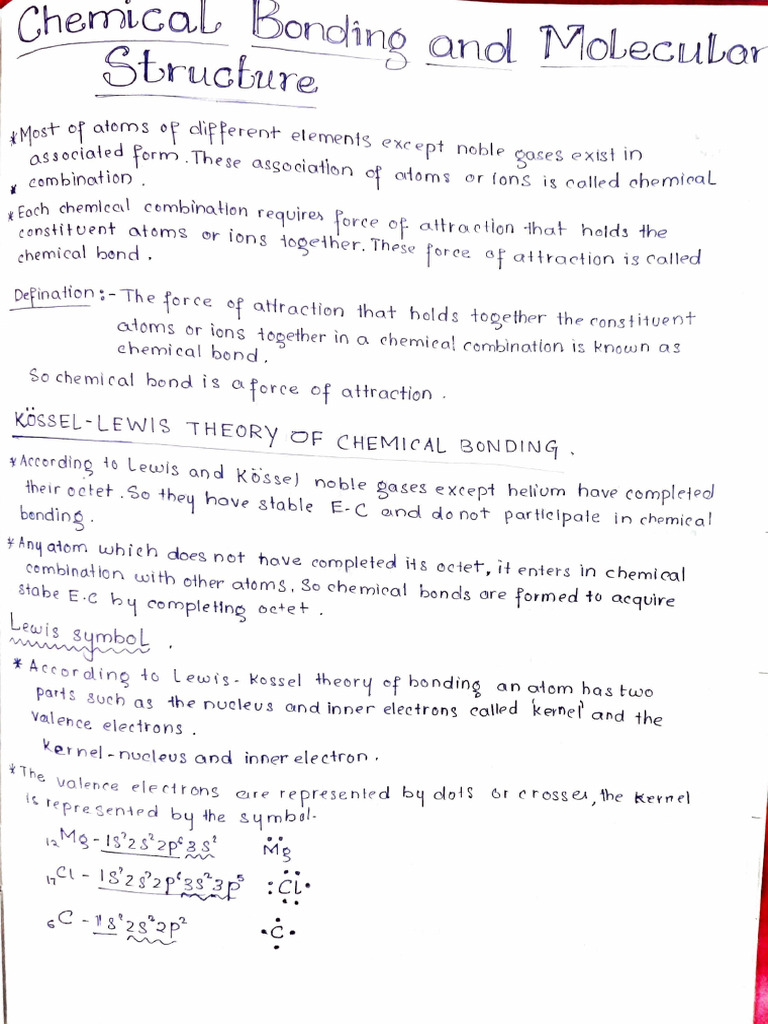 Chemical Bonding and Molecular
Structure
*Most of atoms of different elements except noble gases exist in
associated form. These association of atoms or ions is called chemical
* combination.
*Each chemical combination requires force of attraction that holds the
constituent atoms or ions together. These force of attraction is called
chemical bond.
Defination:- The force of attraction that holds together the constituent
atoms or ions together in a chemical combination is known as
chemical bond.
So chemical bond is a force of attraction.
KÖSSEL-LEWIS THEORY OF CHEMICAL BONDING.
*According to Lewis and Kössel noble gases except helium have completed
their octet. So they have stable E-C and do not participate in chemical
bending.
*Any atom which does not have completed its octet, it enters in chemical
combination with other atoms. So chemical bonds are formed to acquire
stabe E.C by completing octet.
Lewis symbol.
*According to Lewis-Kossel theory of bonding an atom has two
parts such as the nucleus and inner electrons called 'kernel' and the
valence electrons.
kernel-nucleus and inner electron.
*The valence electrons are represented by dots or crosses, the kernel
is represented by the symbol.
₁₂Mg - 1s²2s²2p⁶3s² Mg
₁₇Cl - 1s²2s²2p⁶3s²3p⁵ :Cl·
₆C - 1s²2s²2p² ·C·